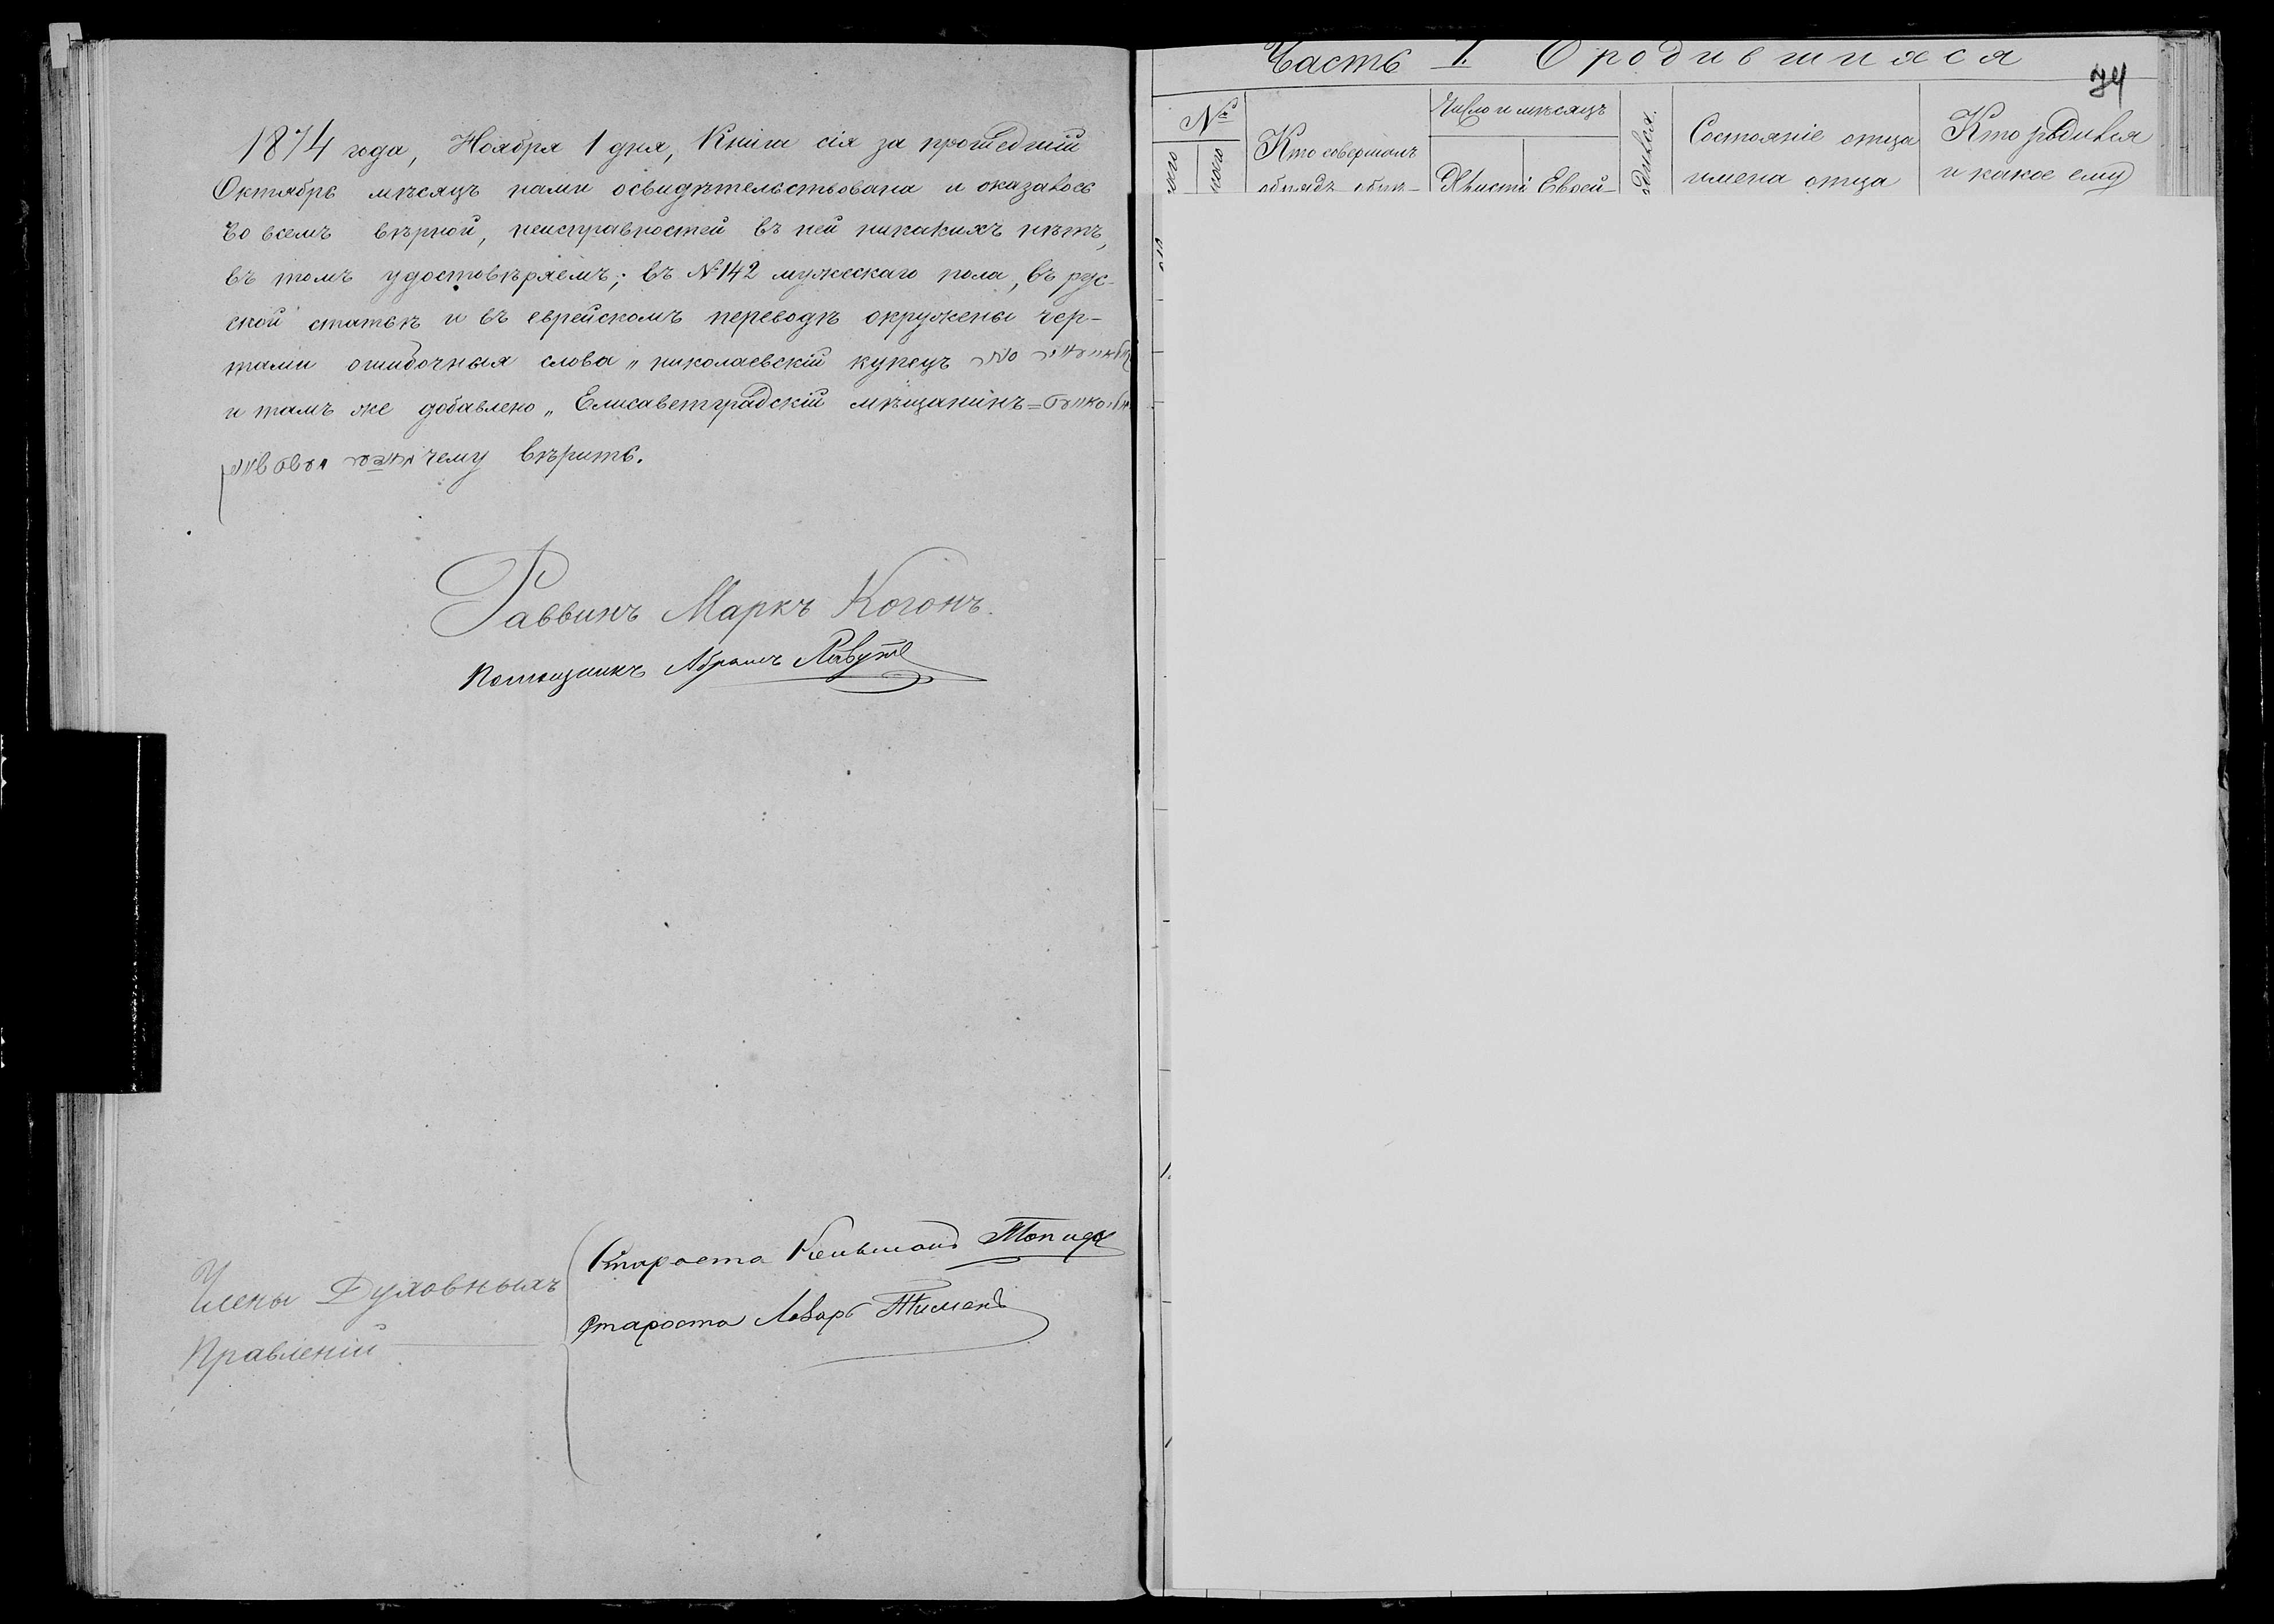 1874 года, Ноября 1 дня, Книга сія за прошедшій
Октябрь мѣсяцъ нами освидѣтельствована и оказалось
во всемъ вѣрной, неисправностей въ ней никакихъ нѣтъ,
въ томъ удостовѣряемъ; въ № 142 мужескаго пола, въ рус-
ской статьѣ и въ еврейскомъ переводѣ окружены чер-
тами ошибочныя слова „николаевскій купецъ
и тамъ же добавлено „Елисаветградскій мѣщанинъ=
чему вѣрить.
Раввинъ Маркъ Когонъ.
Помощникъ Абрамъ
Члены Духовныхъ
Правленій
Староста
Староста
Часть I. О родившихся
74
№
Кто совершалъ
Число и мѣсяцъ
Христі Еврей-
Состояніе отца
имена отца
Кто родился
и какое ему